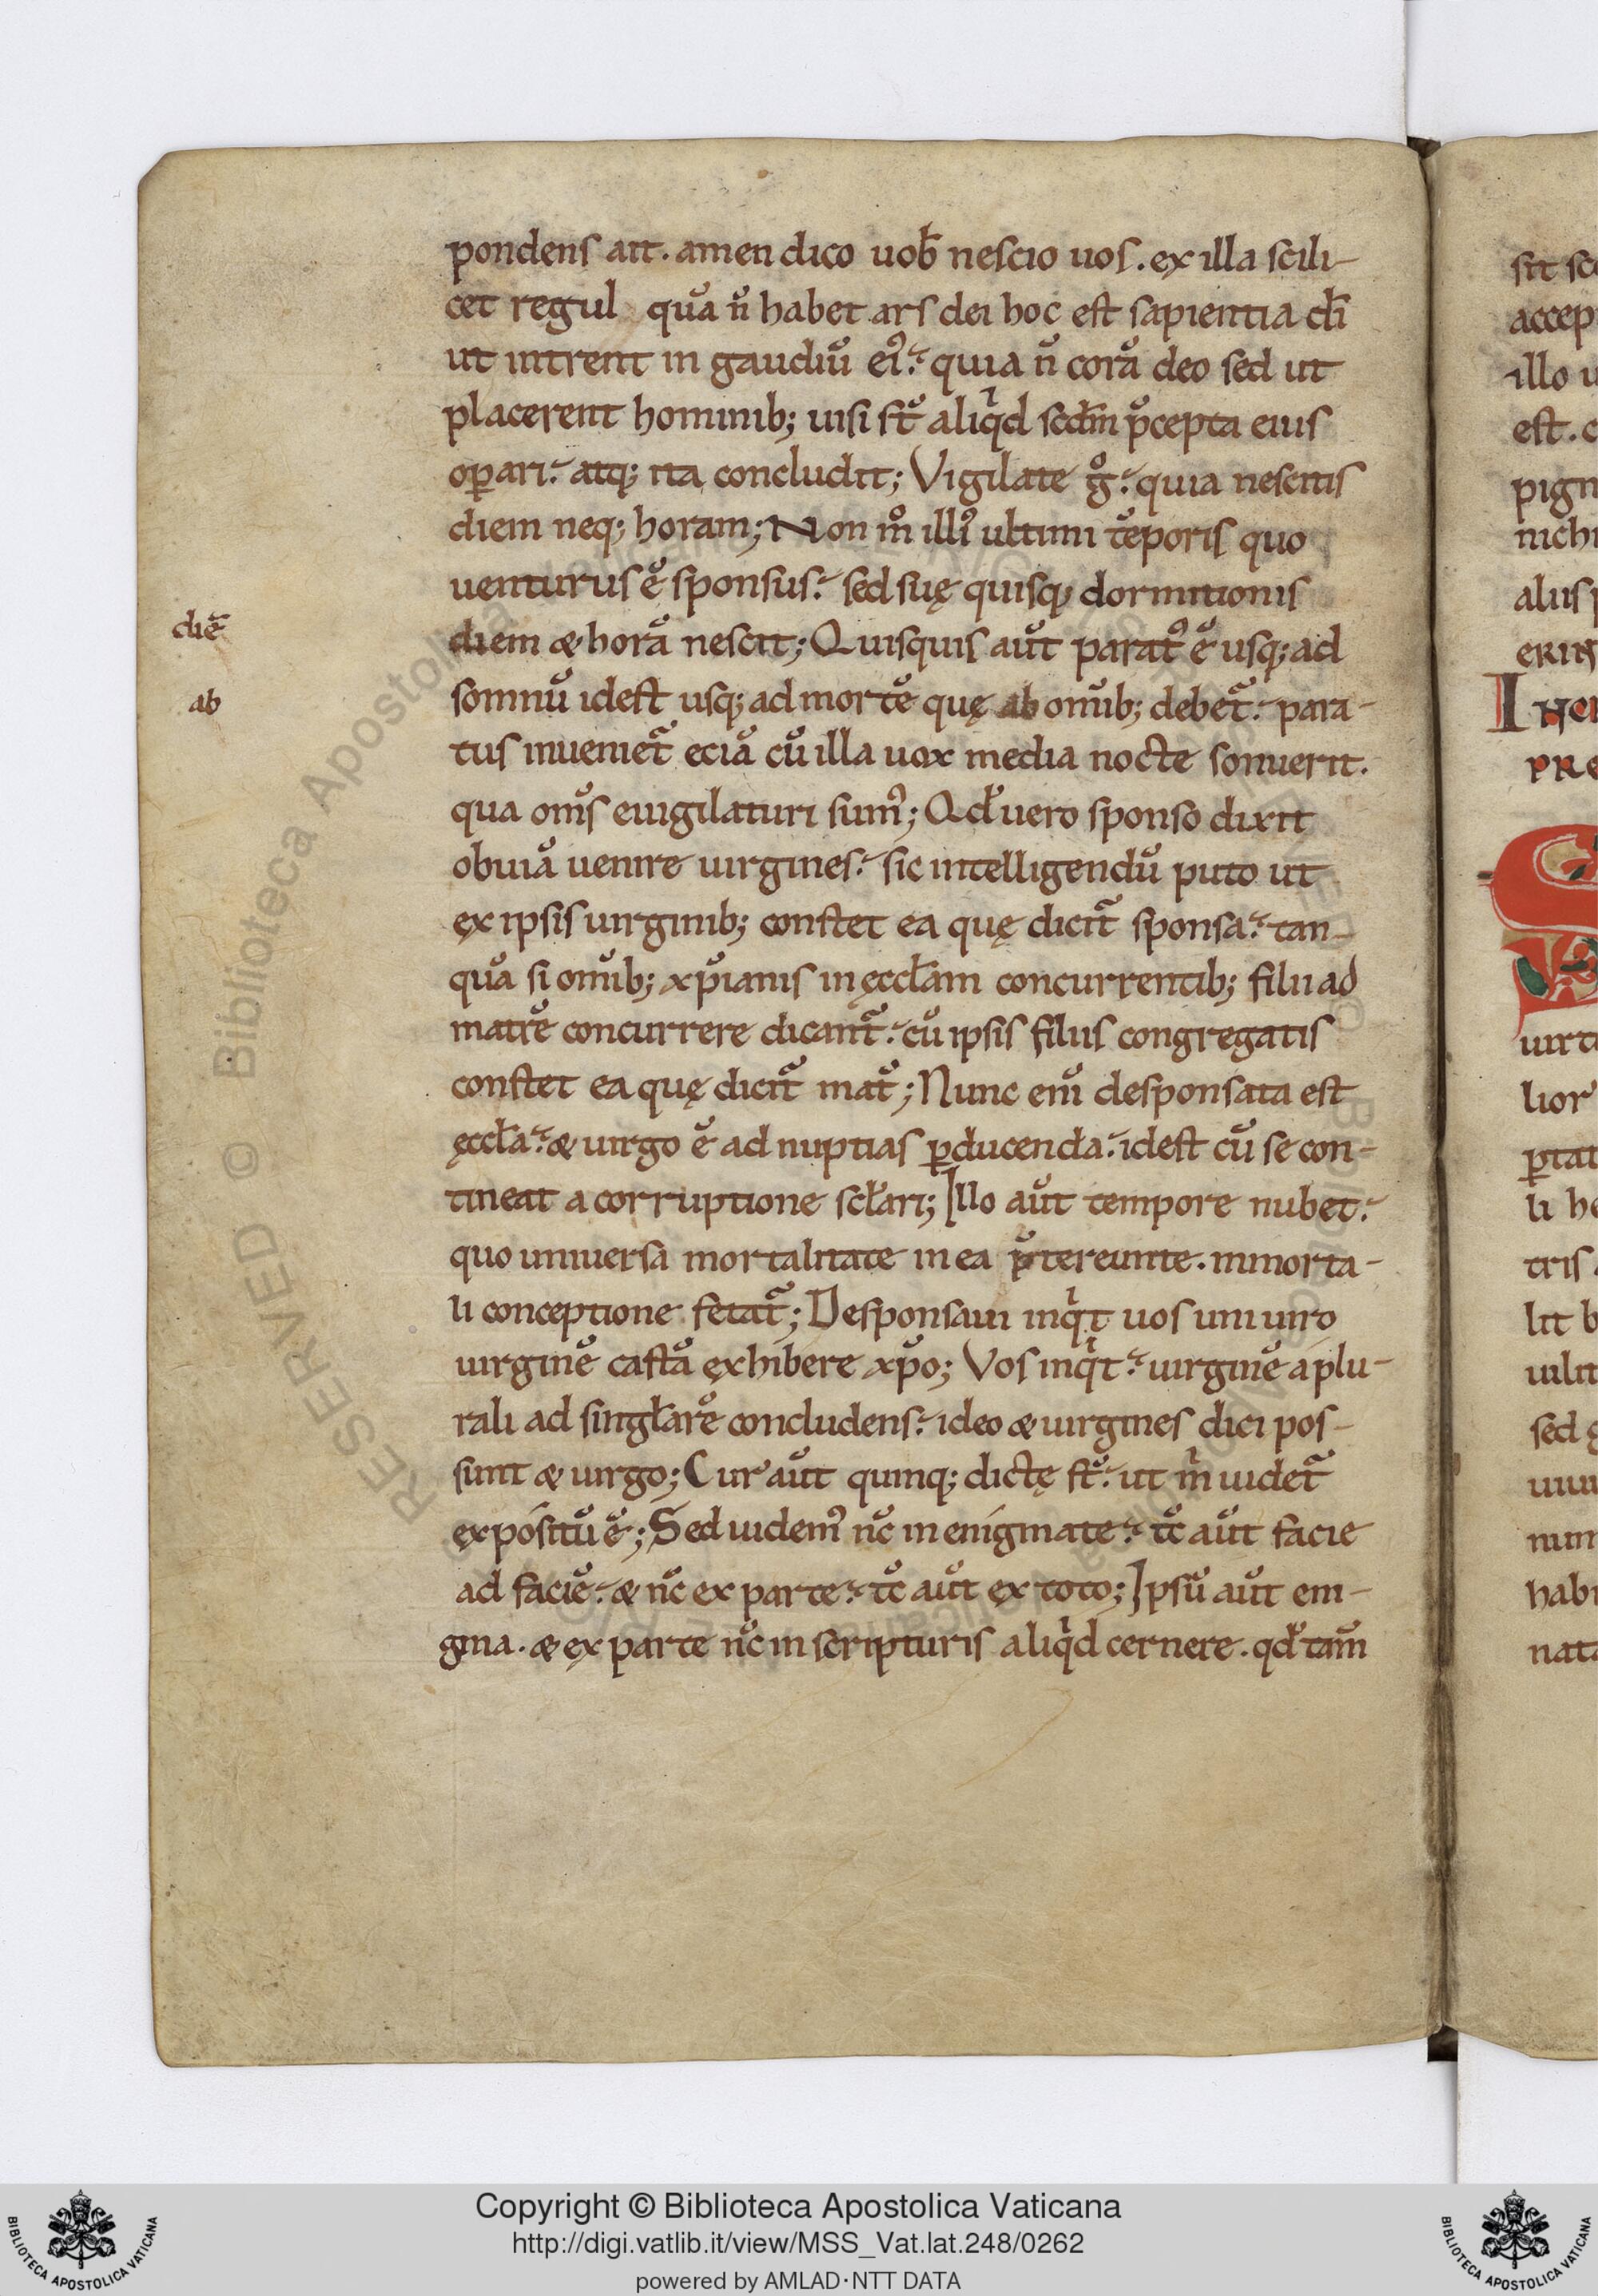 pondens ait. amen dico uob̄ nescio uos. ex illa scili-
cet regul quā n̄ habet ars dei hoc est sapientia dī
ut intrent in gaudiū ei᾿. quia n̄ corā deo sed ut
placerent hominib; uisi st̄ aliqd scdm p̄cepta eius
opari. atq; ita concludit; Vigilate g°. quia nescitis
diem neq; horam; Non m° illi᾿ ultimi tēporis quo
uenturus ē sponsus. sed suę quisq; dormitionis
diē
diem & horā nescit; Quisquis aūt parat᾿ ē usq; ad
ab
somnū idest usq; ad mortē quę ab omīb; debet᷑. para-
tus inueniet᷑ eciā cū illa uox media nocte sonuerit.
qua om̄s euigilaturi sum᾿; Qd̄ uero sponso dixit
obuiā uenire uirgines. sic intelligendū puto ut
ex ipsis uirginib; constet ea quę dicit᷑ sponsa. tan-
quā si omīb; xp̄ianis in ęccłam concurrentib; filii ad
matrē concurrere dicant᷑. cū ipsis filiis congregatis
constet ea quę dicit᷑ mat̄; Nunc enī desponsata est
ęccła. & uirgo ē ad nuptias ꝑducenda. idest cū se con-
tineat a corruptione scłari; Illo aūt tempore nubet.
quo uniuersa mortalitate in ea p̄tereunte. inmorta-
li conceptione fetat᷑; Desponsaui inqt uos uni uiro
uirginē castā exhibere xp̄o; Vos inqt. uirginē a plu-
rali ad singłarē concludens. ideo & uirgines dici pos-
sunt & uirgo; Cur aūt quinq; dictę st̄. ut m uidet᷑
expositū ē; Sed uidem᾿ nc̄ in enigmate. tc̄ aūt facie
ad faciē. & nc̄ ex parte. tc̄ aūt ex toto; Ipsū aūt eni-
gma. & ex parte nc̄ in scripturis aliqd cernere. qd̄ tam̄
sit sc
accep
illo u
est. c
pign
nichi
aliis
erin
Inci
pre
uirt
lior
ꝑtat
li h
tris
lit b
uilit
sed
num
habi
nata
Copyright © Biblioteca Apostolica Vaticana
http://digi.vatlib.it/view/MSS_Vat.lat.248/0262
powered by AMLAD·NTT DATA
BIBLIOTECA APOSTOLICA VATICANA
BIBLIOTECA APOSTOLICA VATICANA